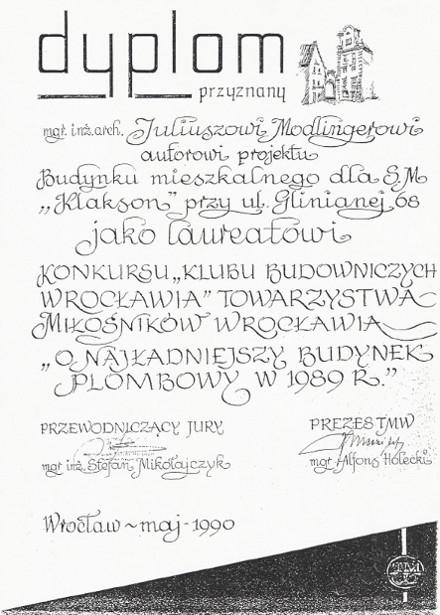 dyplom
przyznany
mgr. inż. arch. Juliuszowi Modlingerowi
autorowi projektu
Budynku mieszkalnego dla S.M
„Klakson” przy ul. Glinianej 68
jako laureatowi
KONKURSU „KLUBU BUDOWNICZYCH
WROCŁAWIA” TOWARZYSTWA
MIŁOŚNIKÓW WROCŁAWIA
„O NAJŁADNIEJSZY BUDYNEK
PLOMBOWY W 1989 R.”
PRZEWODNICZĄCY JURY
mgr inż. Stefan Mikołajczyk
PREZES TMW
mgr Alfons Holecki
Wrocław ~ maj - 1990